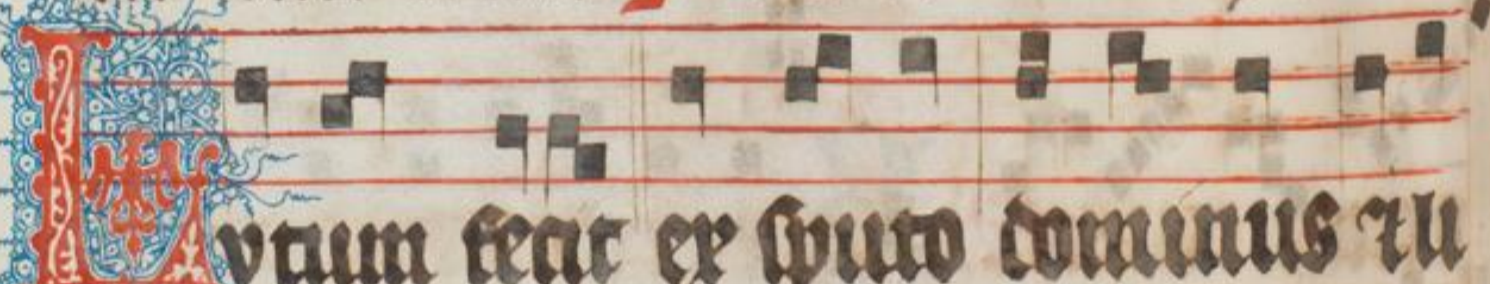 Lutum fecit ex sputo dominus ⁊ li